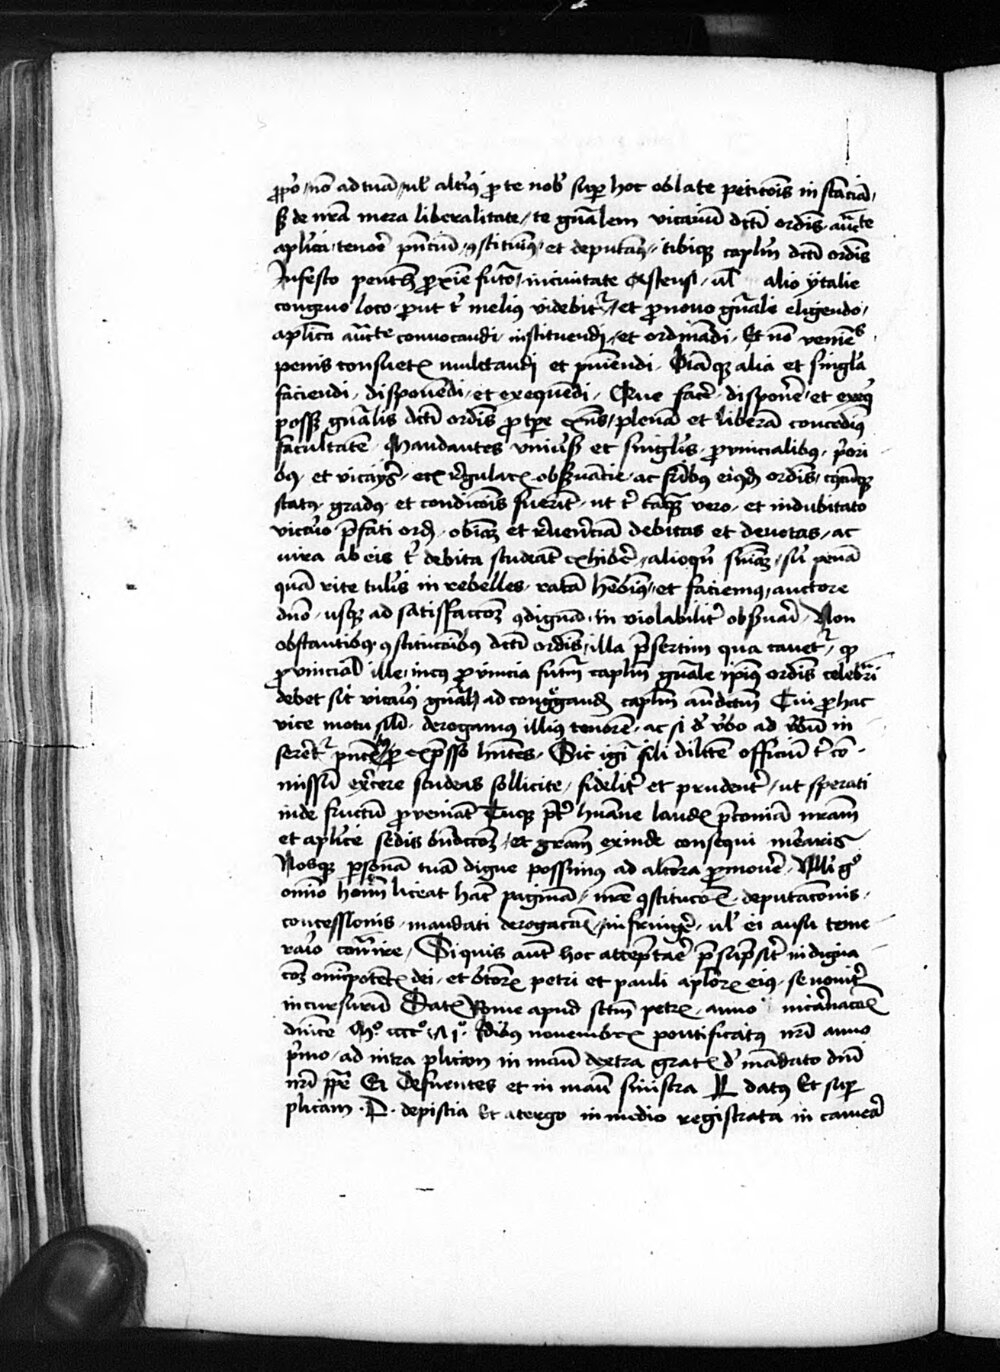 ꝓpō / nō ad tuā / ul' altiꝰ ꝓ te nob̄ sup hoc oblate peticōis instanciā /
sꝫ de n̄ra mera liberalitate / te gn̄alem vicariū dcti ordīs auc̄te
aplīca tenore pn̄ciū ꝯstituimꝰ et deputamꝰ tibiqꝫ caplm̄ dcti ordīs
In festo penth̄ ꝓxie futuro / in civitate Astensi / ul' alio ytalie
congruo loco ꝓut t' melius videbit' / et ꝓ novo gn̄ale eligendo /
aplīca auc̄te convocandi / instituendi / et ordinādi / Et nō veniēs
penis consuet' mulctandi et puniendi / Oīaqꝫ alia et singl'a
faciendi / disponēdi / et exequēdi / Que face' disponē' / et exeq'
possꝫ gn̄alis dcti ordīs ꝓ tꝑe exn̄s / plenā et liberā concedimꝰ
facultatē Mandantes univ̄sis et singl'is ꝓvincialibꝰ p'ori
bꝰ et vicarijs / etꝫ regulat' obs̄vācie / ac fribꝰ eiusdꝫ ordīs / cuiuscūqꝫ
statꝰ gradꝰ et condicōis fuerīt / ut t' tāqꝫ vero / et indubitato
vicario p̄fati ord̄ obiaꝫ et rev̄enciā debitas et devotas / ac
iura ab eis t' debita studeāt exhibe' / alioq'n snīaꝫ / siv' penā
quā rite tul'is in rebelles / ratā hēbimꝰ / et faciemꝰ / auctore
dn̄o / usqꝫ ad satisfaccōꝫ ꝯdignā / in violabilit' obs̄vari / Non
obstantibꝰ ꝯstitucōibꝰ dcti ordīs / illa p̄sertim qua cavet' / qꝫ
ꝓvincial' ille / in cuiꝰ ꝓvincia futuꝫ caplm̄ gn̄ale ipīus ordīs celebr̄i
debet sit vicariꝰ gn̄alis ad congregand̄ caplm̄ an̄dictum Cui ꝓ hac
vice motu sili / derogamus illiꝰ tenorē / ac si d' v̄bo ad v̄bū in
seret' pn̄tibꝫ ꝓ exp̄sso hn̄tes / Sic igi' fili dilcte officiū t' cō
missū ex̄cere studeas sollicite / fidelit' et prudent' / ut sperati
inde fructū ꝓveniāt Tuqꝫ pt' hu̇ane laud' p̄coniā nr̄am
et aplīce sedis bn̄dccōꝫ / et gram̄ exinde consequi mearis
Nosqꝫ ꝑsonā tuā digne possimꝰ ad altiora ꝓmove' / Nulli g°
omīo hoīm liceat hāc paginā / nr̄e ꝯstitucōis / deputacōnis /
concessionis / mandati derogacōis / infringe' / ul' ei ausu teme
rario cont'ire / Siquis aut hoc attept̄are p̄sūps̄it indigna
cōꝫ om̄ipotēt' dei / et bt̄orꝫ petri et pauli aplorꝫ eiꝰ / se noverit
incursurū Dat' Rome apud sctm̄ petrꝫ / anno incarnacōis
dn̄ice M° cccc° vi° Idibꝰ novembr' pontificatꝰ nr̄i anno
p'mo / ad intra plicam in manu dextra grat' d' mādato dn̄i
nr̄i ppē Ei Cefuentes et in manu sinistra P datꝰ Et sup
plicam P. de pistia Et a tergo in medio registrata in camera